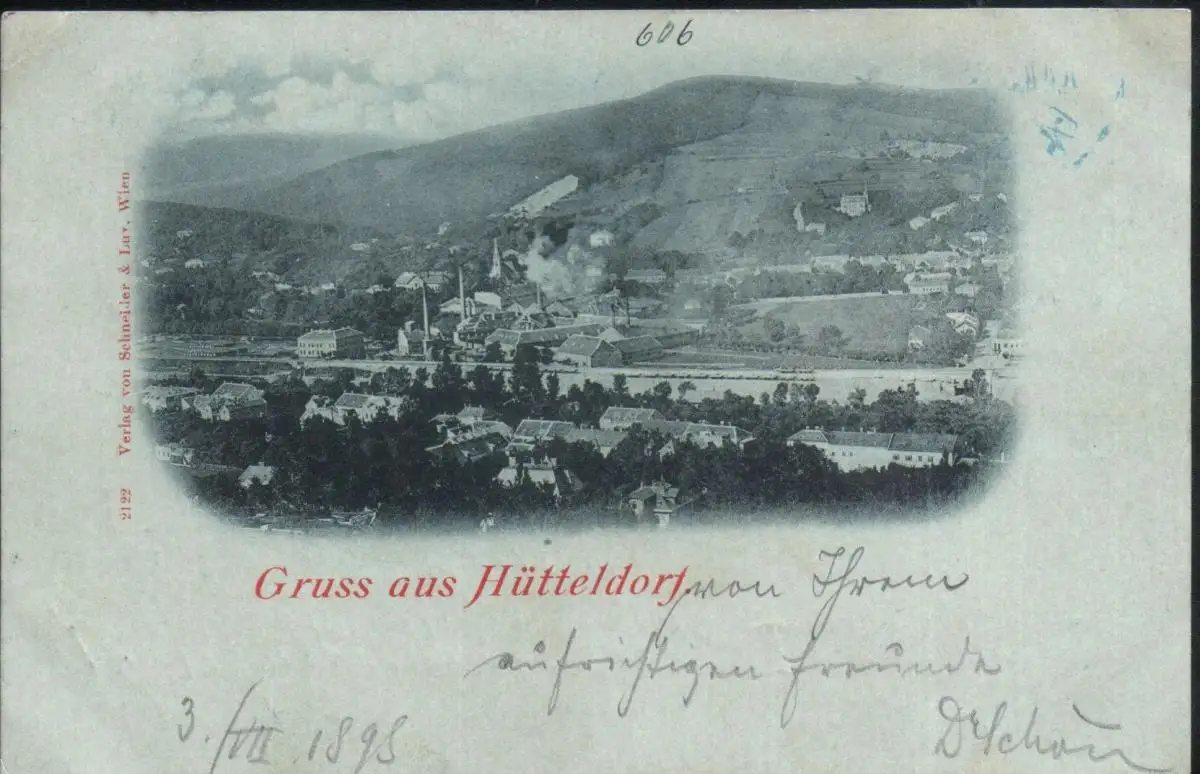 606
2122 Verlag von Schneider & Lux, Wien
Gruss aus Hütteldorf von Ihrem
aufrichtigen Freunde
3./VII 1898
Dr Schön